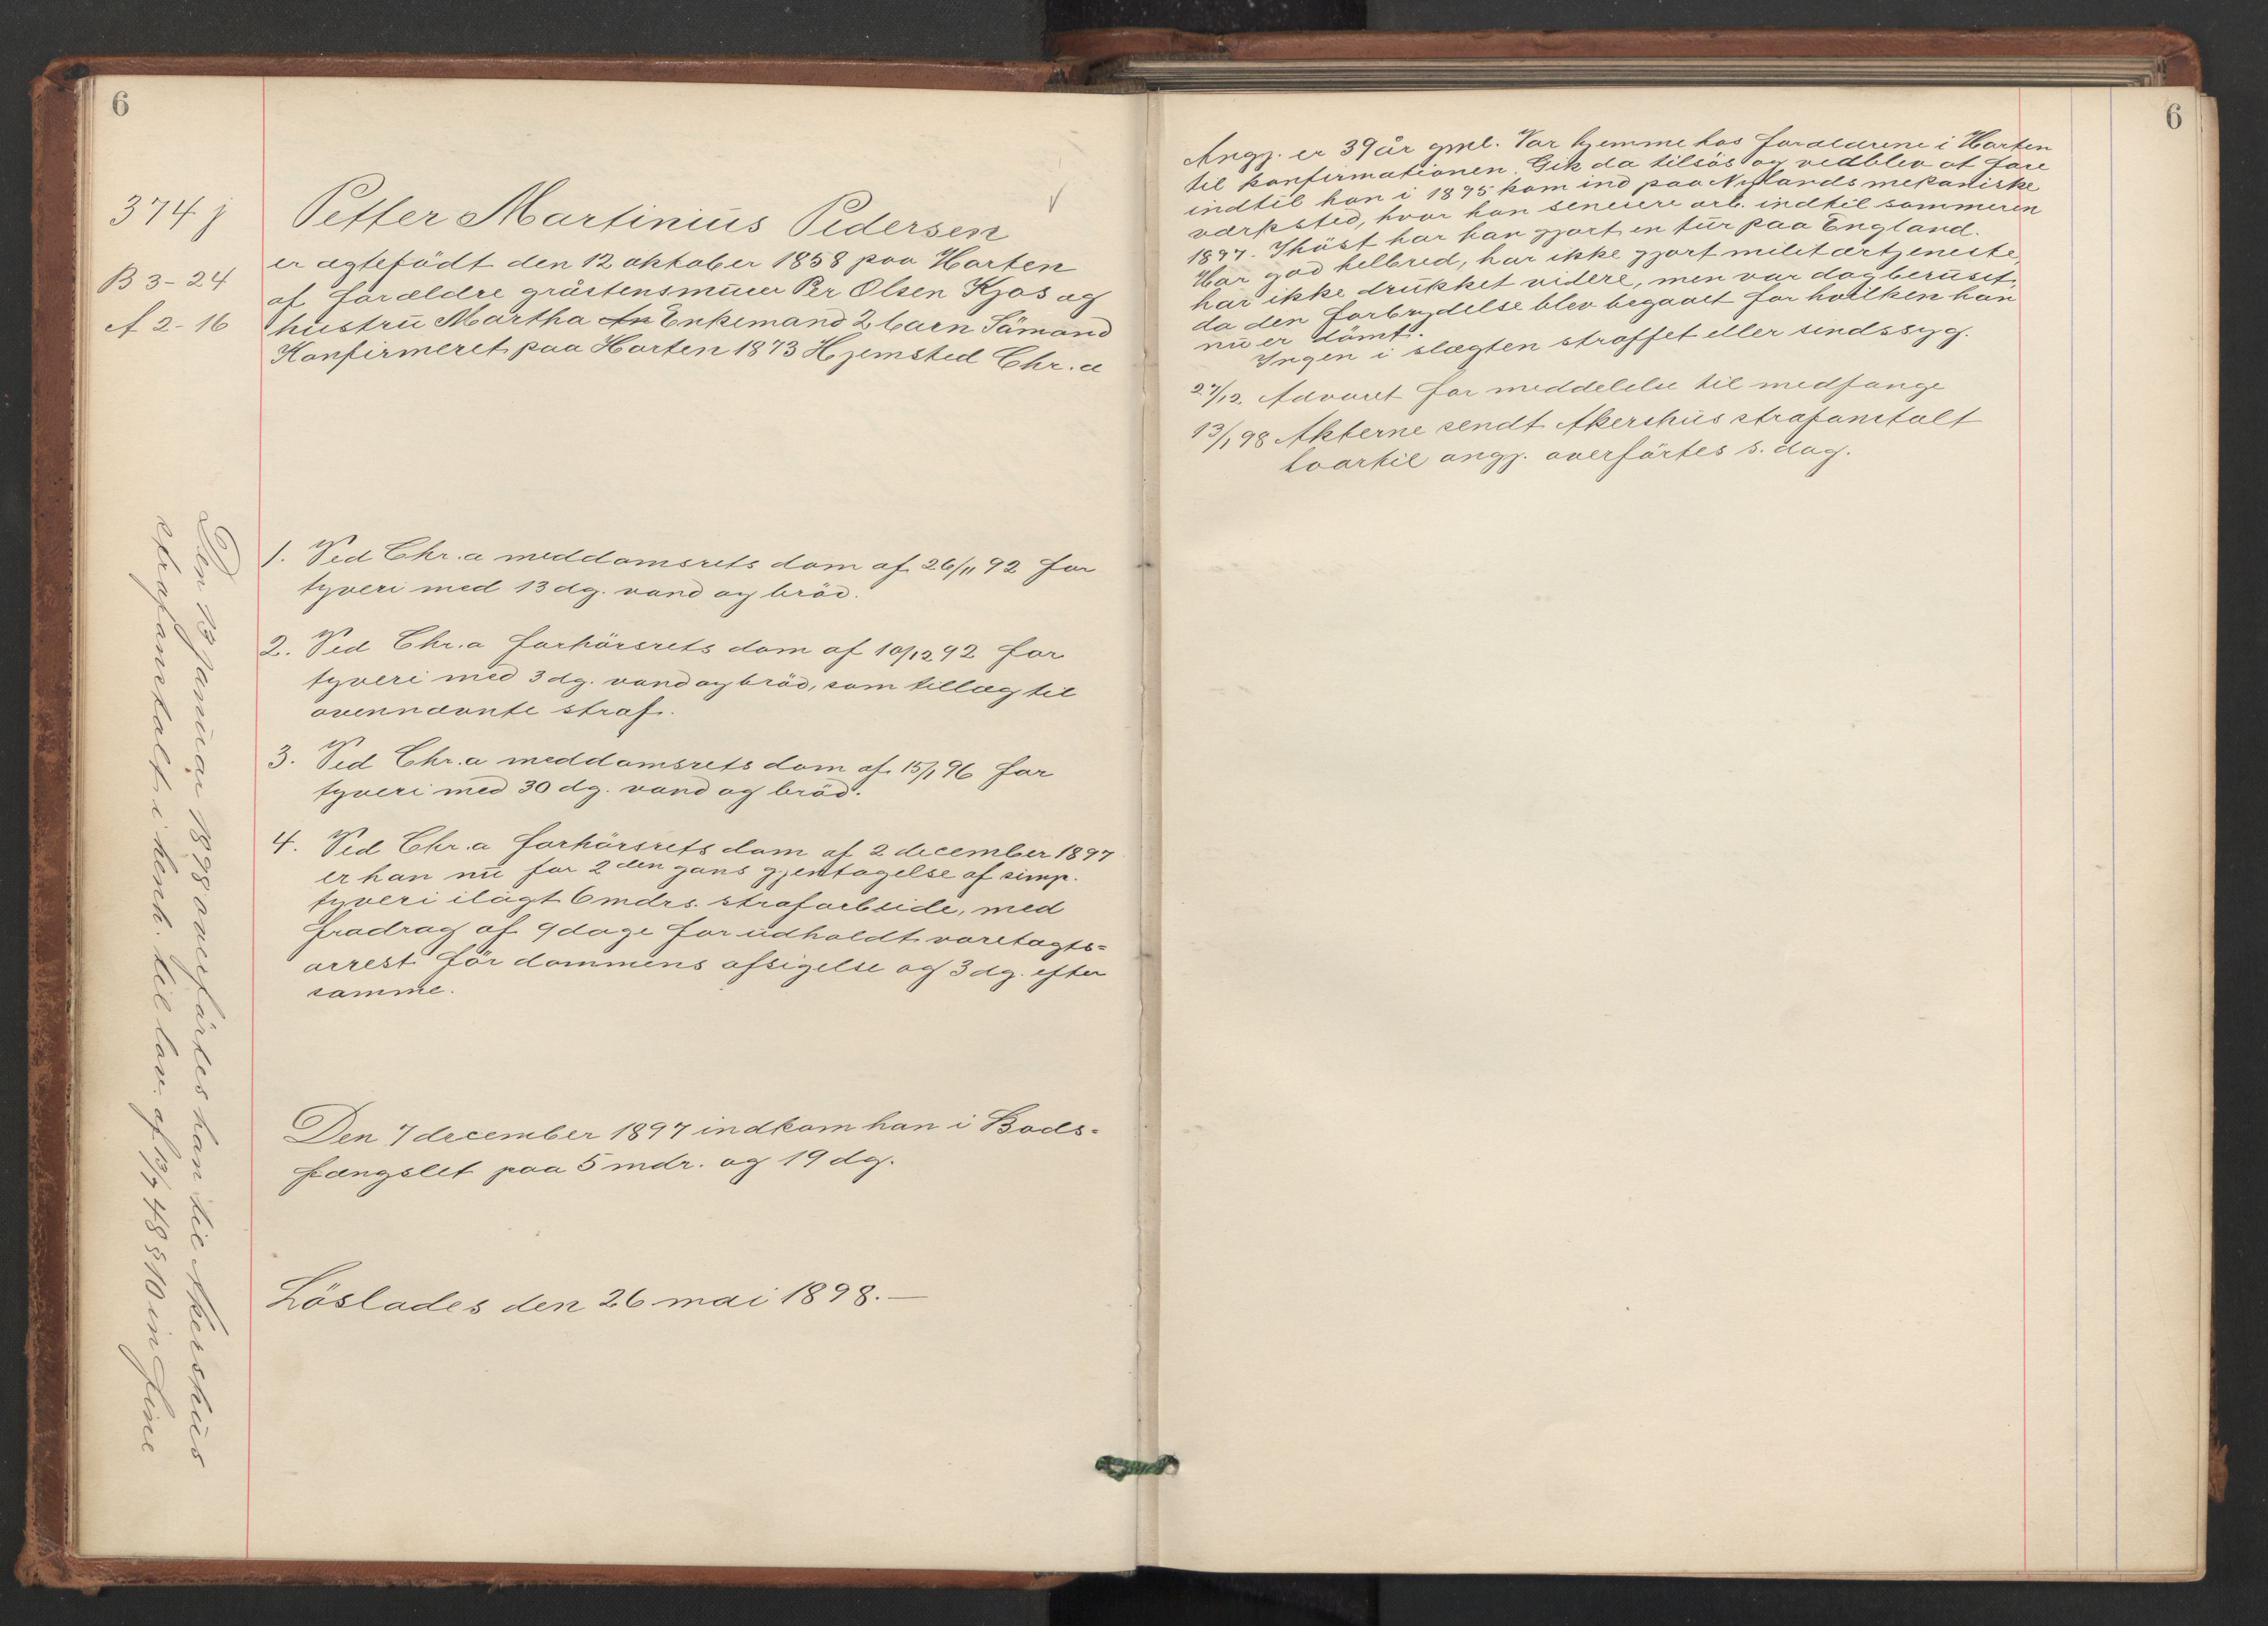 6
374 j
B 3-24
A 2-16
Petter Martinius Pedersen
er ægtefödt den 12 oktober 1858 paa Horten
af forældre gråstensmurer Per Olsen Kjos og
hustru Martha An Enkemand 2 barn Sömand
Konfirmeret paa Horten 1873 Hjemsted Chr.a
1. Ved Chr.a meddomsrets dom af 26/11 92 for
tyveri med 13 dg. vand og bröd.
2. Ved Chr.a forhörsrets dom af 10/12 92 for
tyveri med 3 dg. vand og bröd, som tillæg til
ovennævnte straf.
3. Ved Chr.a meddomsrets dom af 15/1 96 for
tyveri med 30 dg. vand og bröd.
4. Ved Chr.a forhörsrets dom af 2 december 1897
er han nu for 2den gans gjentagelse af simp.
tyveri ilagt 6 mdrs. strafarbeide, med
fradrag af 9 dage for udholdt varetægts=
arrest för dommens afsigelse og 3 dg. efter
samme.
Den 7 december 1897 indkom han i Bods=
fængslet paa 5 mdr. og 19 dg.
Löslades den 26 mai 1898.—
Den 13 januar 1898 overförtes han til Akershus
strafanstalt i henh. til lov af 13/7 48 § 10 in fine
6
Angj. er 39 år gml. Var hjemme hos forældrene i Horten
til konfirmationen. Gik da tilsös og vedblev at fare
indtil han i 1895 kom ind paa Nylands mekaniske
værksted, hvor han senere arb. indtil sommeren
1897. Ihöst har han gjort en tur paa England.
Har god helbred, har ikke gjort militærtjeneste,
har ikke drukket videre, men var dog beruset,
da den forbrydelse blev begaaet for hvilken han
nu er dömt.
Ingen i slægten straffet eller sindssyg.
27/12. Advaret for meddelelse til medfange
13/1 98 Akterne sendt Akershus strafanstalt
hvortil angj. overförtes s. dag.